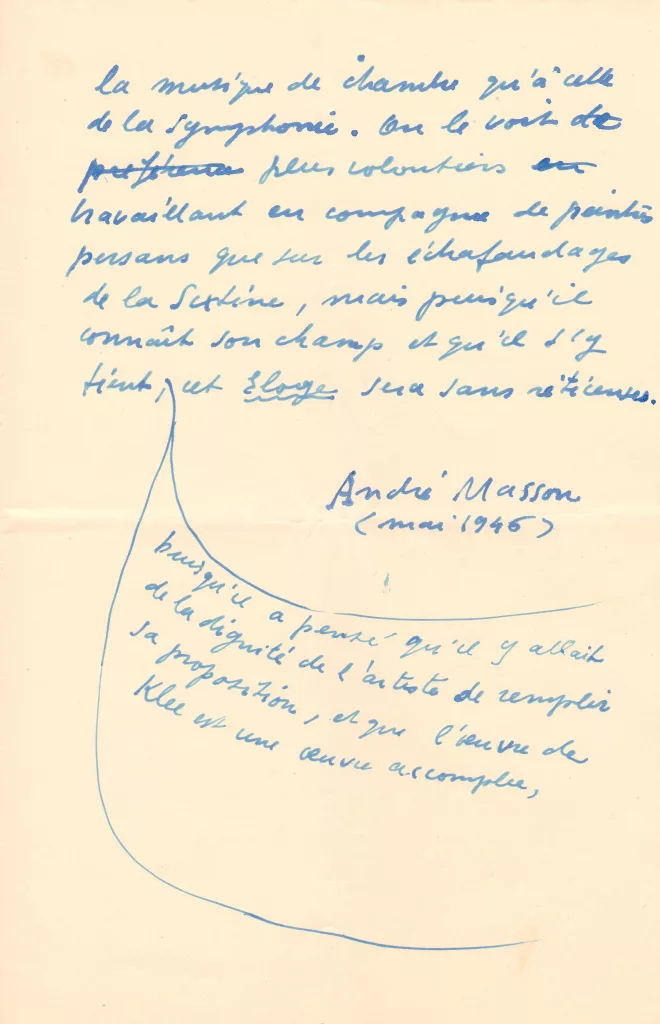 la musique de chambre qu'à celle
de la symphonie. On le voit de
préférence plus volontiers en
travaillant en compagnie de peintres
persans que sur les échafaudages
de la Sixtine, mais puisqu'il
connaît son champ et qu'il s'y
tient, cet Éloge sera sans réticences.
André Masson
(mai 1946)
puisqu'il a pensé qu'il y allait
de la dignité de l'artiste de remplir
sa proposition, et que l'œuvre de
Klee est une œuvre accomplie,